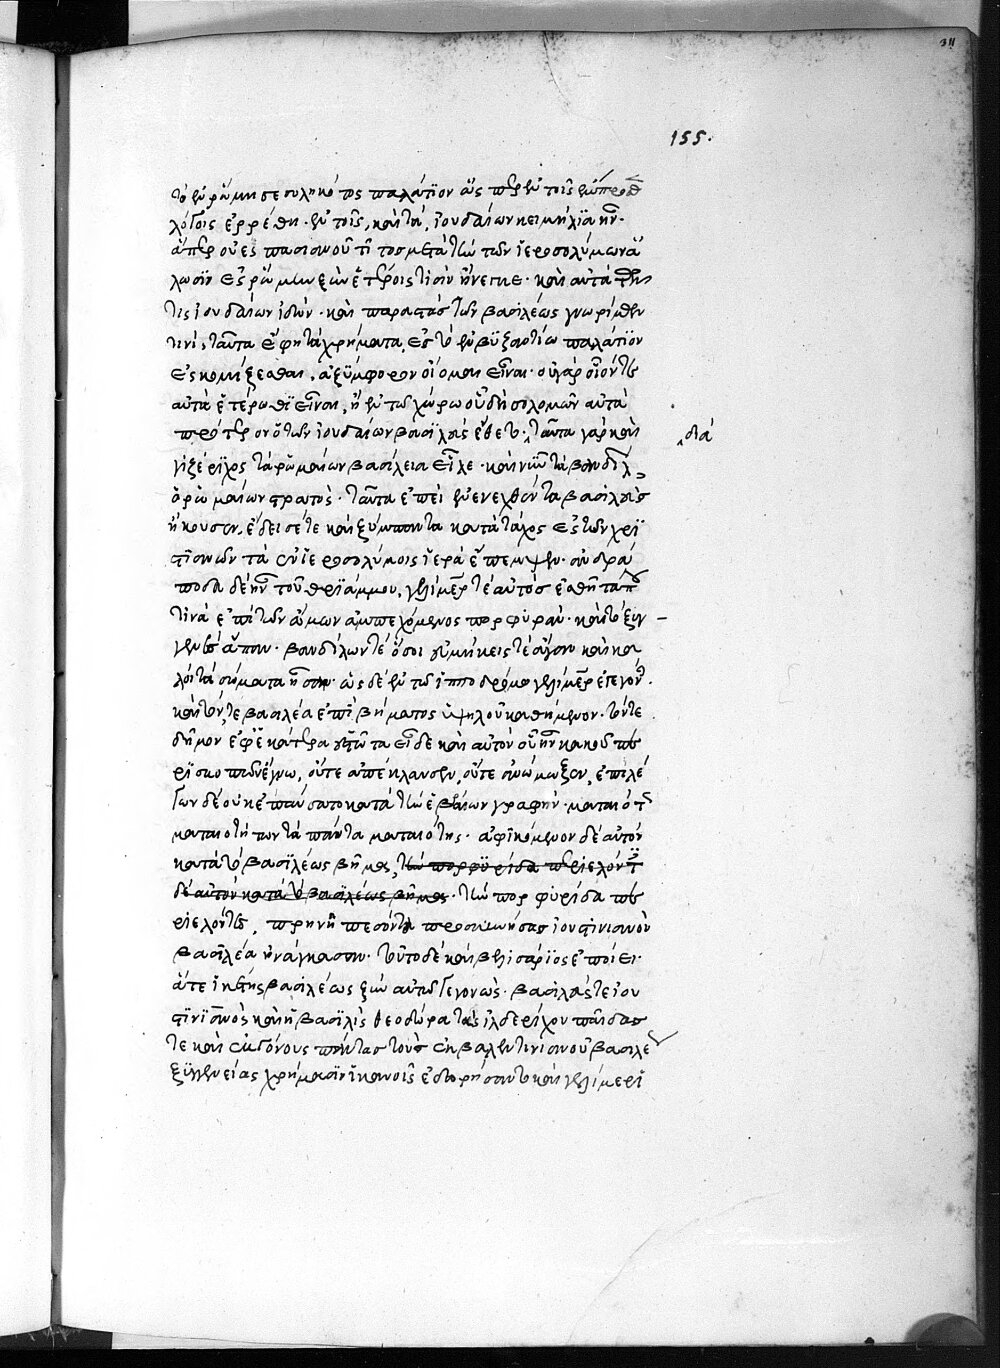 311
155.
τὸ ἐν ῥώμη σεσυληκότος παλάτϊον ὥς περ ἐν τοῖς ἔμπροσθ
λόγοις ἐρρέθη. ἐν τοῖς, καὶ τὰ, ἰουδαίων κειμήλϊα ἦν.
ἅπερ οὐεσπασιανοῦ τίτος μετὰ τὴν τῶν ἱεροσολύμων ἅ
λωσϊν ἐς ῥώμην ξὺν ἑτέροις τισὶν ἤνεγκε. καὶ αὐτὰ
τις ἰουδαίων ἰδὼν. καὶ παραστὰς τῶν βασιλέως γνωρίμων
τινὶ, ταῦτα ἔφη τὰ χρήματα, ἐς τὸ ἐν βυζαντίω παλάτϊον
ἐσκομίζεσθαι, ἀξύμφορον οἴομαι εἶναι. οὐ γὰρ οἷόν τε
αὐτὰ ἑτέρωθϊ εἶναι, ἢ ἐν τῶ χώρω οὗ δὴ σολομὼν αὐτὰ
πρότερον ὁ τῶν ἰουδαίων βασϊλεὺς ἔθετο. ταῦτα γὰρ καὶ
διὰ
γιζέριχος τὰ ῥωμαίων βασίλεια εἷλε. καὶ νῦν τὰ βανδίλ
ὁ ῥωμαίων στρατὸς. ταῦτα ἐπεὶ ἀνενεχθέντα βασιλεὺς
ἤκουσεν, ἔδεισέ τε καὶ ξύμπαντα κατὰ τάχος ἐς τῶν χρϊ
στιανῶν τὰ ἐν ἱεροσολύμοις ἱερὰ ἔπεμψεν. ἀνδρά
ποδα δὲ ἦν τοῦ θριάμμου, γελίμερ τὲ αὐτὸς ἐσθῆτα π
τινὰ ἐπὶ τῶν ὤμων ἀμπεχόμενος πορφύραν. καὶ τὸ ξυγ
γενὲς ἅπαν. βανδίλων τὲ ὅσοι εὐμήκεις τὲ ἄγαν καὶ κα
λοὶ τὰ σώματα ἦσαν. ὡς δὲ ἐν τῶ ἱπποδρόμω γελίμερ ἐγεγόν
καὶ τόν τε βασιλέα ἐπὶ βήματος ὑψηλοῦ καθήμενον. τόν τε
δῆμον ἐφ' ἑκάτερα ἑστῶτα εἶδε καὶ αὐτὸν οὗ ἦν κακοῦ πε
ρισκοπῶν ἔγνω, οὔτε ἀπέκλαυσεν, οὔτε ἀνώμωξεν, ἐπιλέ
γων δὲ οὐκ ἐπαύσατο κατὰ τὴν ἑβραίων γραφὴν. ματαιότ
ματαιοτήτων τὰ πάντα ματαιότης. ἀφικόμενον δὲ αὐτὸν
κατὰ τὸ βασϊλέως βῆμα, τὴν πορφϋρίδα περιελόντ
δὲ αὐτὸν κατὰ τὸ βασϊλέως βῆμα. τὴν πορφυρίδα πε
ριελόντες, πρηνῆ πεσόντα προσκυνῆσαι ἰουστινιανὸν
βασιλέα ἠνάγκασαν. τοῦτο δὲ καὶ βελισάριος ἐποίει.
ἅτε ἱκέτης βασιλέως ξὺν αὐτῶ γεγονὼς. βασιλεύς τε ἰου
στινϊανὸς καὶ ἡ βασϊλὶς θεοδώρα τοὺς ἰλδερίχου παῖδας
τε καὶ ἐκγόνους πάντας τοὺς ἐκ βαλεντινιανοῦ βασιλέ
ξϋγγενείας χρήμασϊν ἱκανοῖς ἐδωρήσαντο καὶ γελίμερϊ